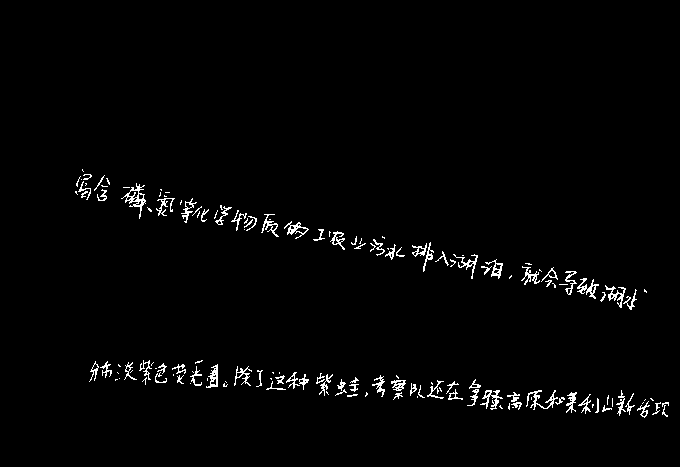 富含磷、氮等化学物质的工农业污水排入湖泊，就会导致湖水
布淡紫色荧光圈。除了这种紫蛙，考察队还在拿骚高原和莱利山新发现